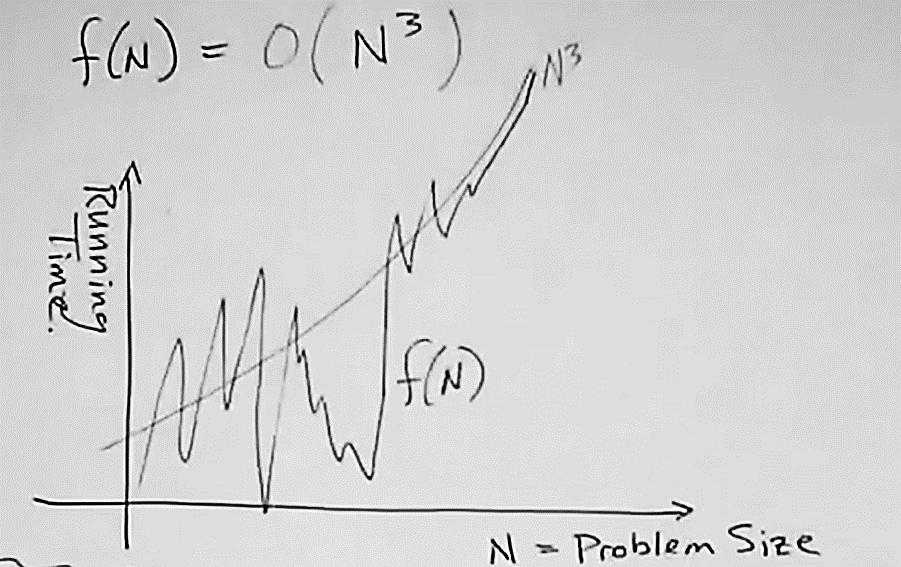 f(N) = O(N³)
N³
Running
Time.
f(N)
N = Problem Size